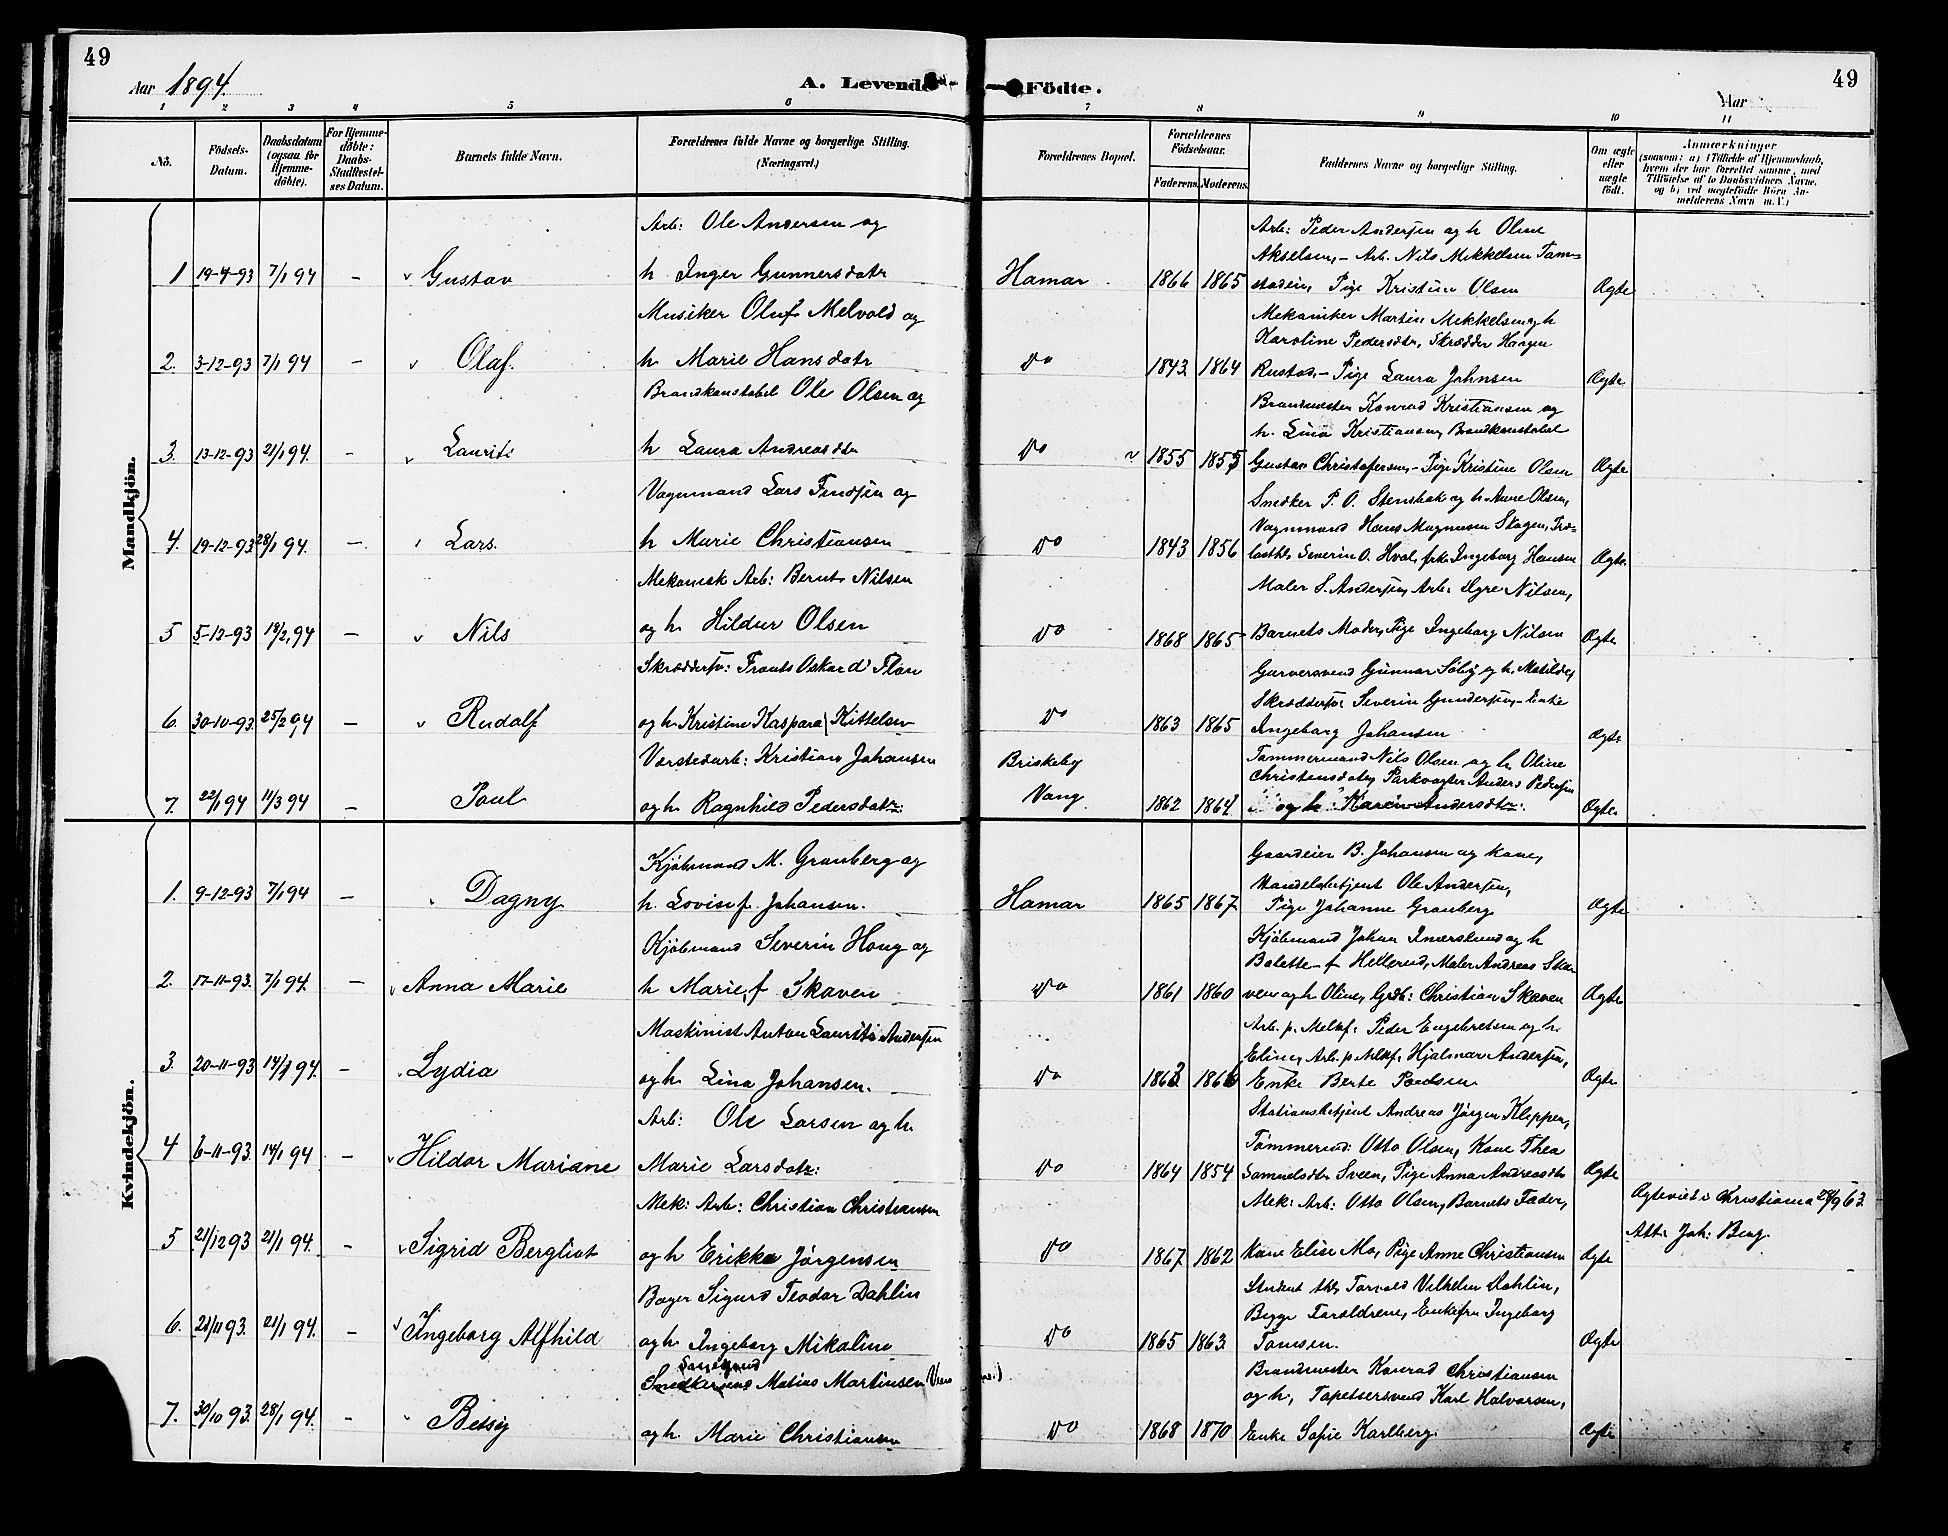 49
49
Aar 1894.
A. Levende
Födte.
Aar
1 2 3 4 5 6 7 8 9 10 11
No.
Födsels-Datum.
Daabsdatum (ogsaa for Hjemme-döbte).
For Hjemme-döbte: Daabs-Stadfæstel-ses Datum.
Barnets fulde Navn.
Forældrenes fulde Navne og borgerlige Stilling. (Næringsvei.)
Forældrenes Bopæl.
Forældrenes Födselsaar.
Faderens.
Moderens.
Faddernes Navne og borgerlige Stilling.
Om ægte eller uægte födt.
Anmærkninger
(saasom: a) i Tilfælde af Hjemmedaab, hvem der har forrettet samme, med Tilföielse af to Daabsvidners Navne, og b) ved uægtefödte Börn Anmelderens Navn m. V.)
Mandkjön.
Arb: Ole Andersen og
Arb: Peder Andersen og h Oline
Akselsen, - Arb. Nils Mikkelsen Tom=
1 19-4-93 7/1 94 - Gustav h Inger Gunnersdatr Hamar 1866 1865 stadein, Pige Kristine Olsen Ægte
Musiker Oluf Melvold og
Mekaniker Martin Mekkelsen og h
Karoline Pedersdtr, Skrædder Haagen
2. 3-12-93 7/1 94 - Olaf. h Marie Hansdatr Do 1843 1864 Rustad, - Pige Laura Johnsen Ægte
Brandkonstabel Ole Olsen og
Brandmester Konrad Kristiansen og
h. Lina Kristiansen, Brandkonstabel
3. 13-12-93 21/1 94. - Laurits h Laura Andreasdtr Do 1855 1855 Gustav Christofersen, - Pige Kristine Olsen Ægte
Vognmand Lars Findsen og
Snedker P. O. Stenshak og h. Anne Olsen,
Vognmand Hans Magnusen Skogen,
4. 19-12-93 28/1 94. - Lars. h Marie Christiansen Do 1843 1856 Severin O. Hval, frk. Ingeborg Hansen Ægte.
Mekanisk Arb: Bernt Nilsen
Maler S. Andersen, Arb. Nilsen,
5 5-12-93 18/2 94 - Nils og h. Hildur Olsen Do 1868 1865 Barnets Moder, Pige Ingeborg Nilsen Ægte
Skræddersv: Frants Oskar d Flon
Garversvend Gunnar Söby og h. Matilde,
Skræddersv: Severin Gundersen, - Enke
6. 30-10-93 25/2 94 - Rudolf og h Kristine Kaspara Kittelsen Do 1863 1865 Ingeborg Johansen Ægte
Værstedarb: Kristian Johansen Briskeby
Tømmermand Nils Olsen og h Oline
Christensdatr, Parkvogter Anders Pedersen
7. 22/1 94 11/3 94 - Paul og h Ragnhild Pedersdatr. Vang 1862 1864 og h Karen Andersdtr. Ægte.
Kvindekjön.
Kjöbmand M. Granberg og
Gaardeier B. Johansen og Kone,
Handelsbetjent Ole Andersen,
1. 9-12-93 7/1 94 - Dagny h. Lovise f. Johansen. Hamar 1865 1867 Pige Johanne Granberg Ægte
Kjöbmand Severin Houg og
Kjöbmand Johan Imerslund og h
Bolette f Hellerud, Maler Andreas Ska
2. 17-11-93. 7/1 94. - Anna Marie h Marie, f Skaven Do 1861 1860 ven og h Oline, Grdb: Christian Skaven Ægte
Maskinist Anton Laurits Andersen
Arb. p. Melkf: Peder Engebretsen og h.
Eline, Arb. p. Mlkf. Hjalmar Andersen,
3. 20-11-93 14/1 94. - Lydia og h. Lina Johansen. Do 1863 1866 Enke Berte Poulsen. Ægte
Arb: Ole Larsen og h.
Stationsbetjent Andreas Jörgen Kleppen,
Tömmermd: Otto Olsen, Kone Thea
4 6-11-93. 14/1 94 - Hildor Mariane Marie Larsdatr. Do 1864 1854 Samuelsdtr Sveen, Pige Anna Andreasdtr Ægte
Mek: Arb: Christian Christiansen
Mek: Arb: Otto Olsen, Barnets Fader,
Ægteviet i Christiania 28/9 63.
Att. Joh: Berg.
5 21/12 93 21/1 94. - Sigrid Bergliot og h Erikka Jørgensen Do 1867 1862 Kone Elise Mo, Pige Anne Christiansen Ægte
Bager Sigurd Teodor Dahlin
Student Torvald Vilhelm Dahlin,
Begge Forældrene, Enkefru Ingeborg
6. 21/11 93. 21/1 94. - Ingeborg Alfhild og h Ingeborg Mikaline Do 1865 1863 Tomsen. Ægte
Snedkersvend Matias Martinsen
Brandmester Konrad Christiansen
og h, Tapetsersvend Karl Halvorsen,
7. 30/10 93. 28/1 94. - Betsy og h. Marie Christiansen Do 1868 1870 Enke Sofie Karlberg. Ægte